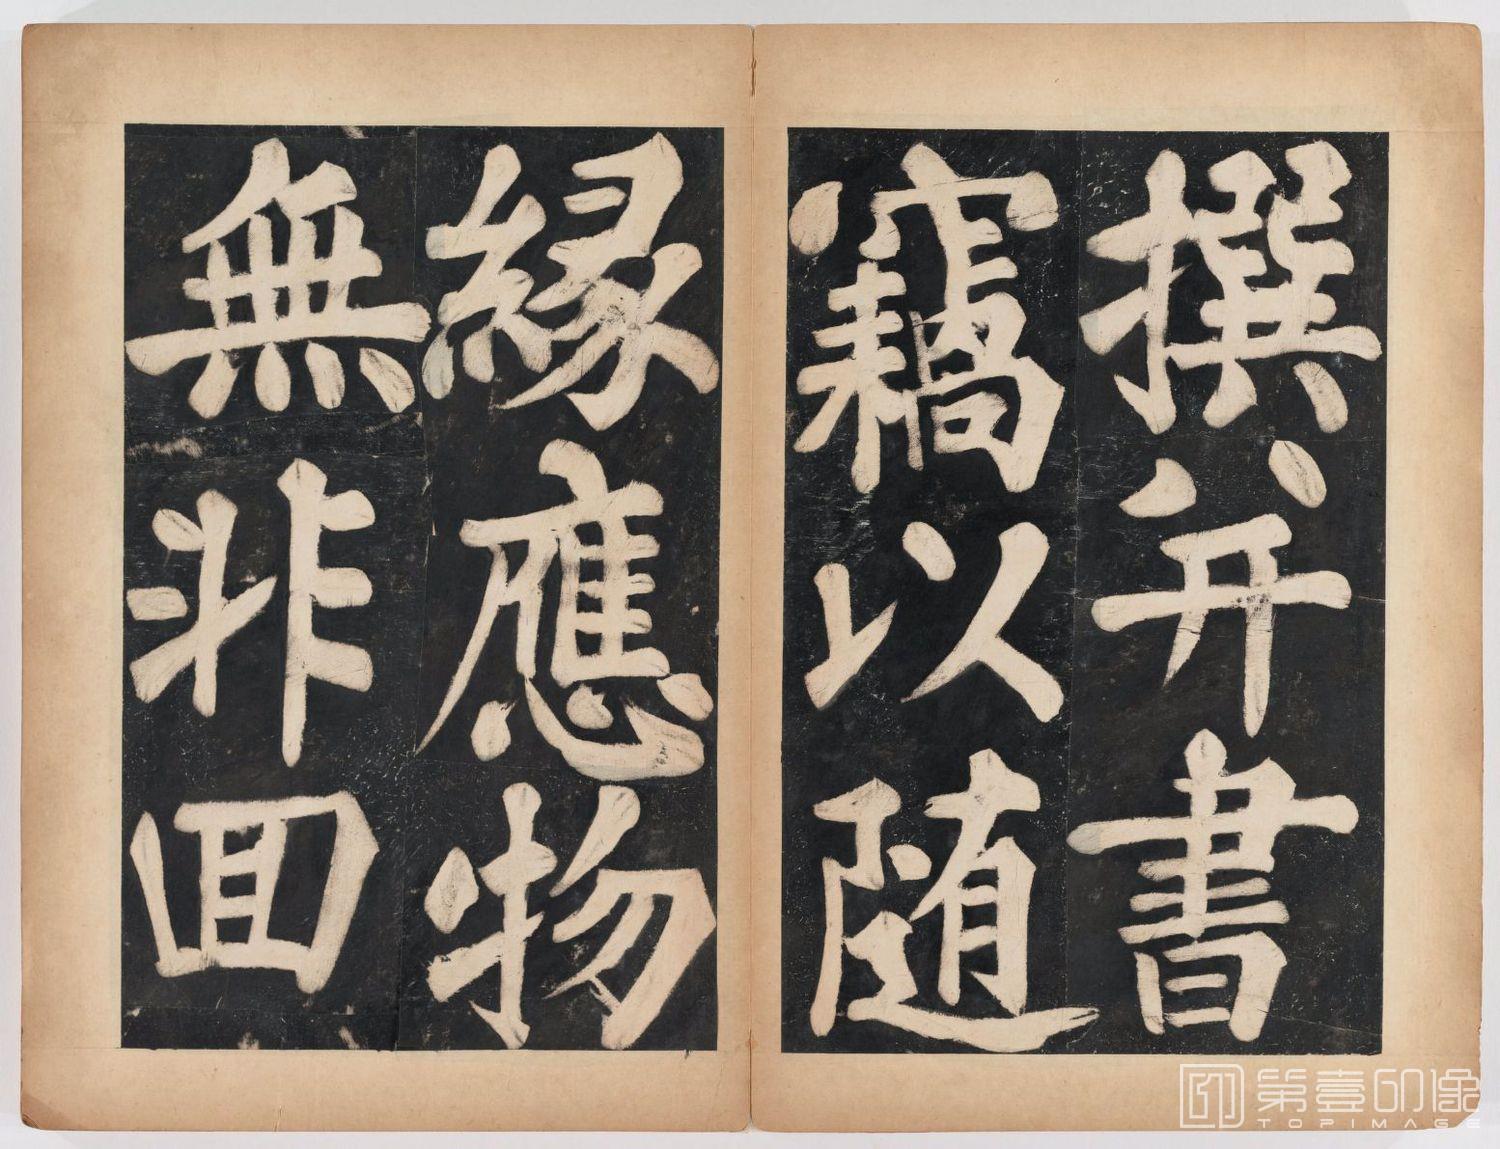 撰并書
竊以隨
緣應物
無非回
第壹印像
TOPIMAGE